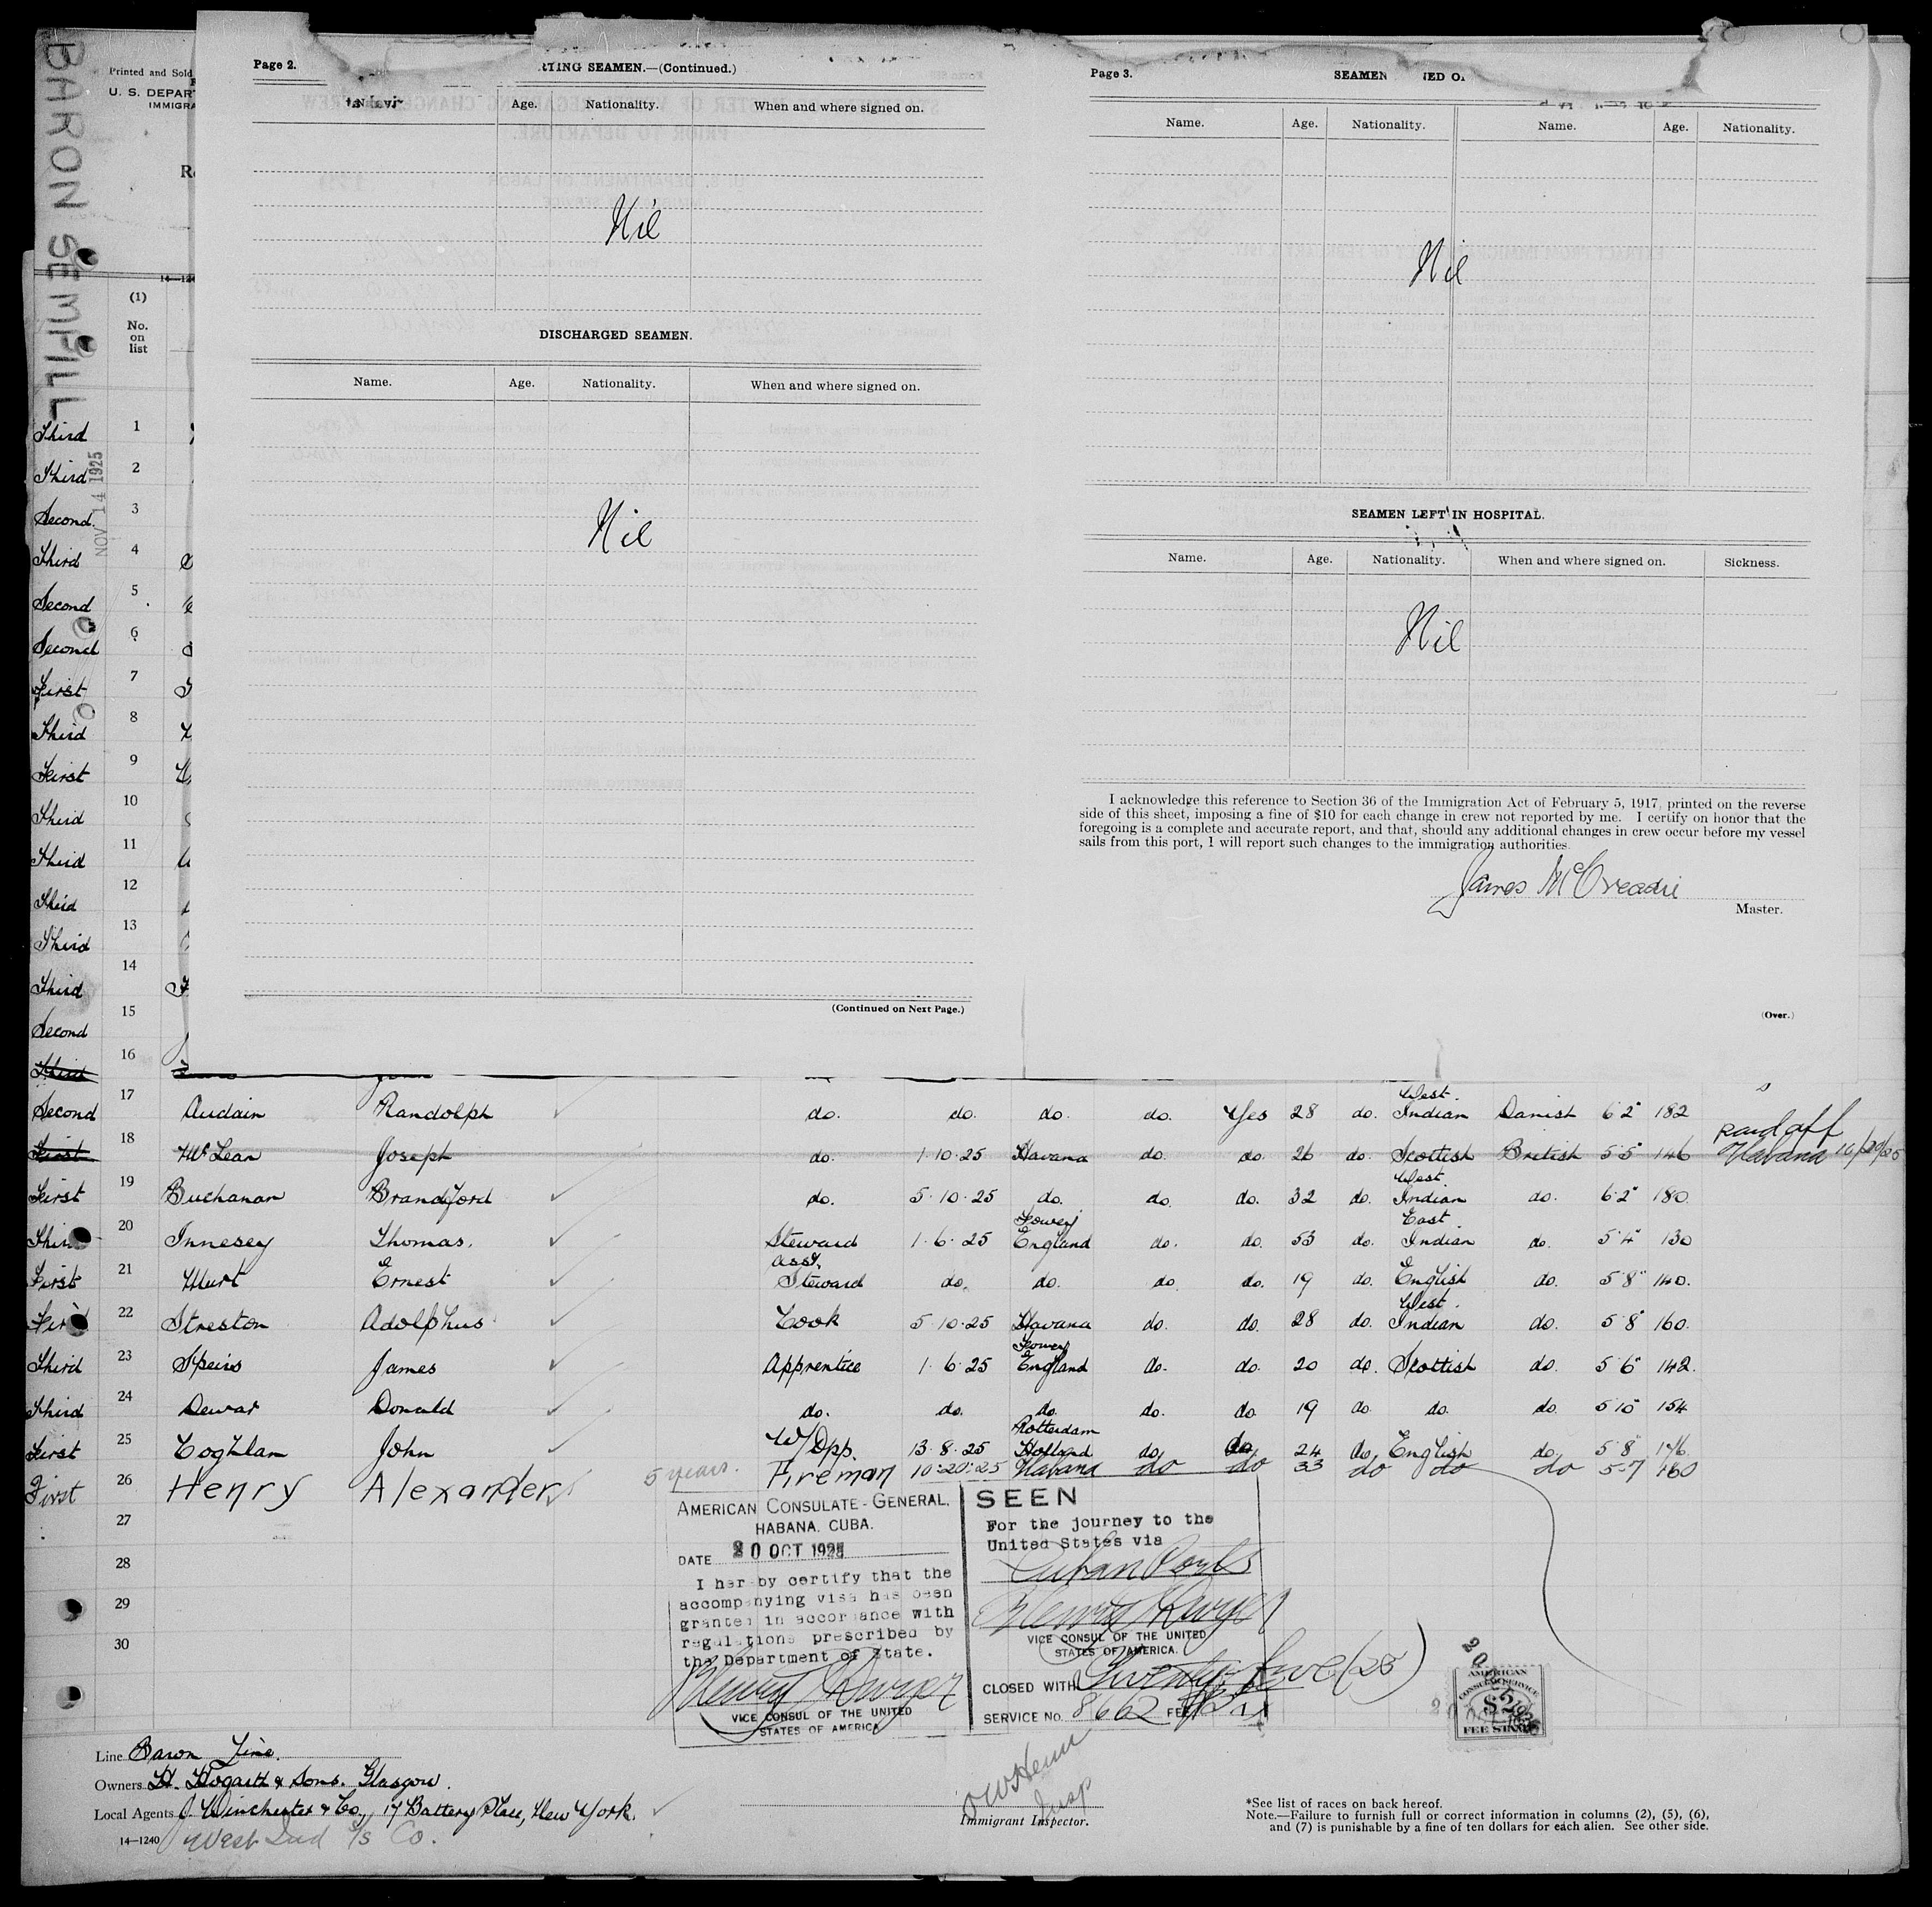 BARON SEMPILL
NOV 14 1925
Printed and Sold
U. S. DEPAR
IMMIGRA
14—124
(1)
No.
on
list
Page 2.
RTING SEAMEN.—(Continued.)
Age. Nationality. When and where signed on.
Nil
DISCHARGED SEAMEN.
Name. Age. Nationality. When and where signed on.
Nil
(Continued on Next Page.)
Page 3.
SEAMEN
Name. Age. Nationality. Name. Age. Nationality.
Nil
SEAMEN LEFT IN HOSPITAL.
Name. Age. Nationality. When and where signed on. Sickness.
Nil
I acknowledge this reference to Section 36 of the Immigration Act of February 5, 1917, printed on the reverse
side of this sheet, imposing a fine of $10 for each change in crew not reported by me. I certify on honor that the
foregoing is a complete and accurate report, and that, should any additional changes in crew occur before my vessel
sails from this port, I will report such changes to the immigration authorities.
James McCreadie
Master.
(Over.)
Third 1
Third 2
Second. 3
Third 4
Second 5
Second 6
First 7
Third 8
First 9
Third 10
Third 11
Third 12
Third 13
Third 14
Second 15
Third 16
Second 17 Audain Randolph do. do. do. do. Yes 28 do. West Indian Danish 6 2" 182
First 18 McLean Joseph do. 1.10.25 Havana do. do. 26 do. Scottish British 5 5" 146 paid off Habana 10/20/25
First 19 Buchanan Brandford do. 5.10.25 do. do. do. 32 do. West. Indian do. 6 2" 180
Third 20 Innesey Thomas. Steward 1.6.25 Fowey England do. do. 53 do. East Indian do. 5 4" 130
First 21 Hurt Ernest Asst. Steward do. do. do. do. 19 do. English do. 5 8" 140.
First 22 Streston Adolphus Cook 5.10.25 Havana do. do. 28 do. West. Indian do. 5 8" 160.
Third 23 Speirs James Apprentice 1.6.25 Fowey England do. do. 20 do. Scottish do. 5 6" 142.
Third 24 Dewar Donald do. do. do. do. do 19 do. do. do. 5 10" 154
First 25 Coghlan John W/Opp. 13.8.25 Rotterdam Holland do. do. 24 do. English do. 5 8" 146.
First 26 Henry Alexander 5 years. Fireman 10-20-25 Habana do do 33 do do do 5-7 160
27
28
29
30
AMERICAN CONSULATE-GENERAL,
HABANA. CUBA.
DATE 20 OCT 1925
I hereby certify that the
accompanying visa has been
granted in accordance with
regulations prescribed by
the Department of State.
VICE CONSUL OF THE UNITED
STATES OF AMERICA
SEEN
For the journey to the
United States via
Cuban Ports
VICE CONSUL OF THE UNITED
STATES OF AMERICA.
CLOSED WITH Twenty five (25)
SERVICE NO. 8662 FEE
AMERICAN
CONSULAR SERVICE
$2
FEE STAMP
Line Baron Line.
Owners H. Hogarth & Sons. Glasgow.
Local Agents J. Winchester & Co., 17 Battery Place, New York.
14—1240 West Ind S/S Co.
Insp
Immigrant Inspector.
*See list of races on back hereof.
Note.—Failure to furnish full or correct information in columns (2), (5), (6),
and (7) is punishable by a fine of ten dollars for each alien. See other side.